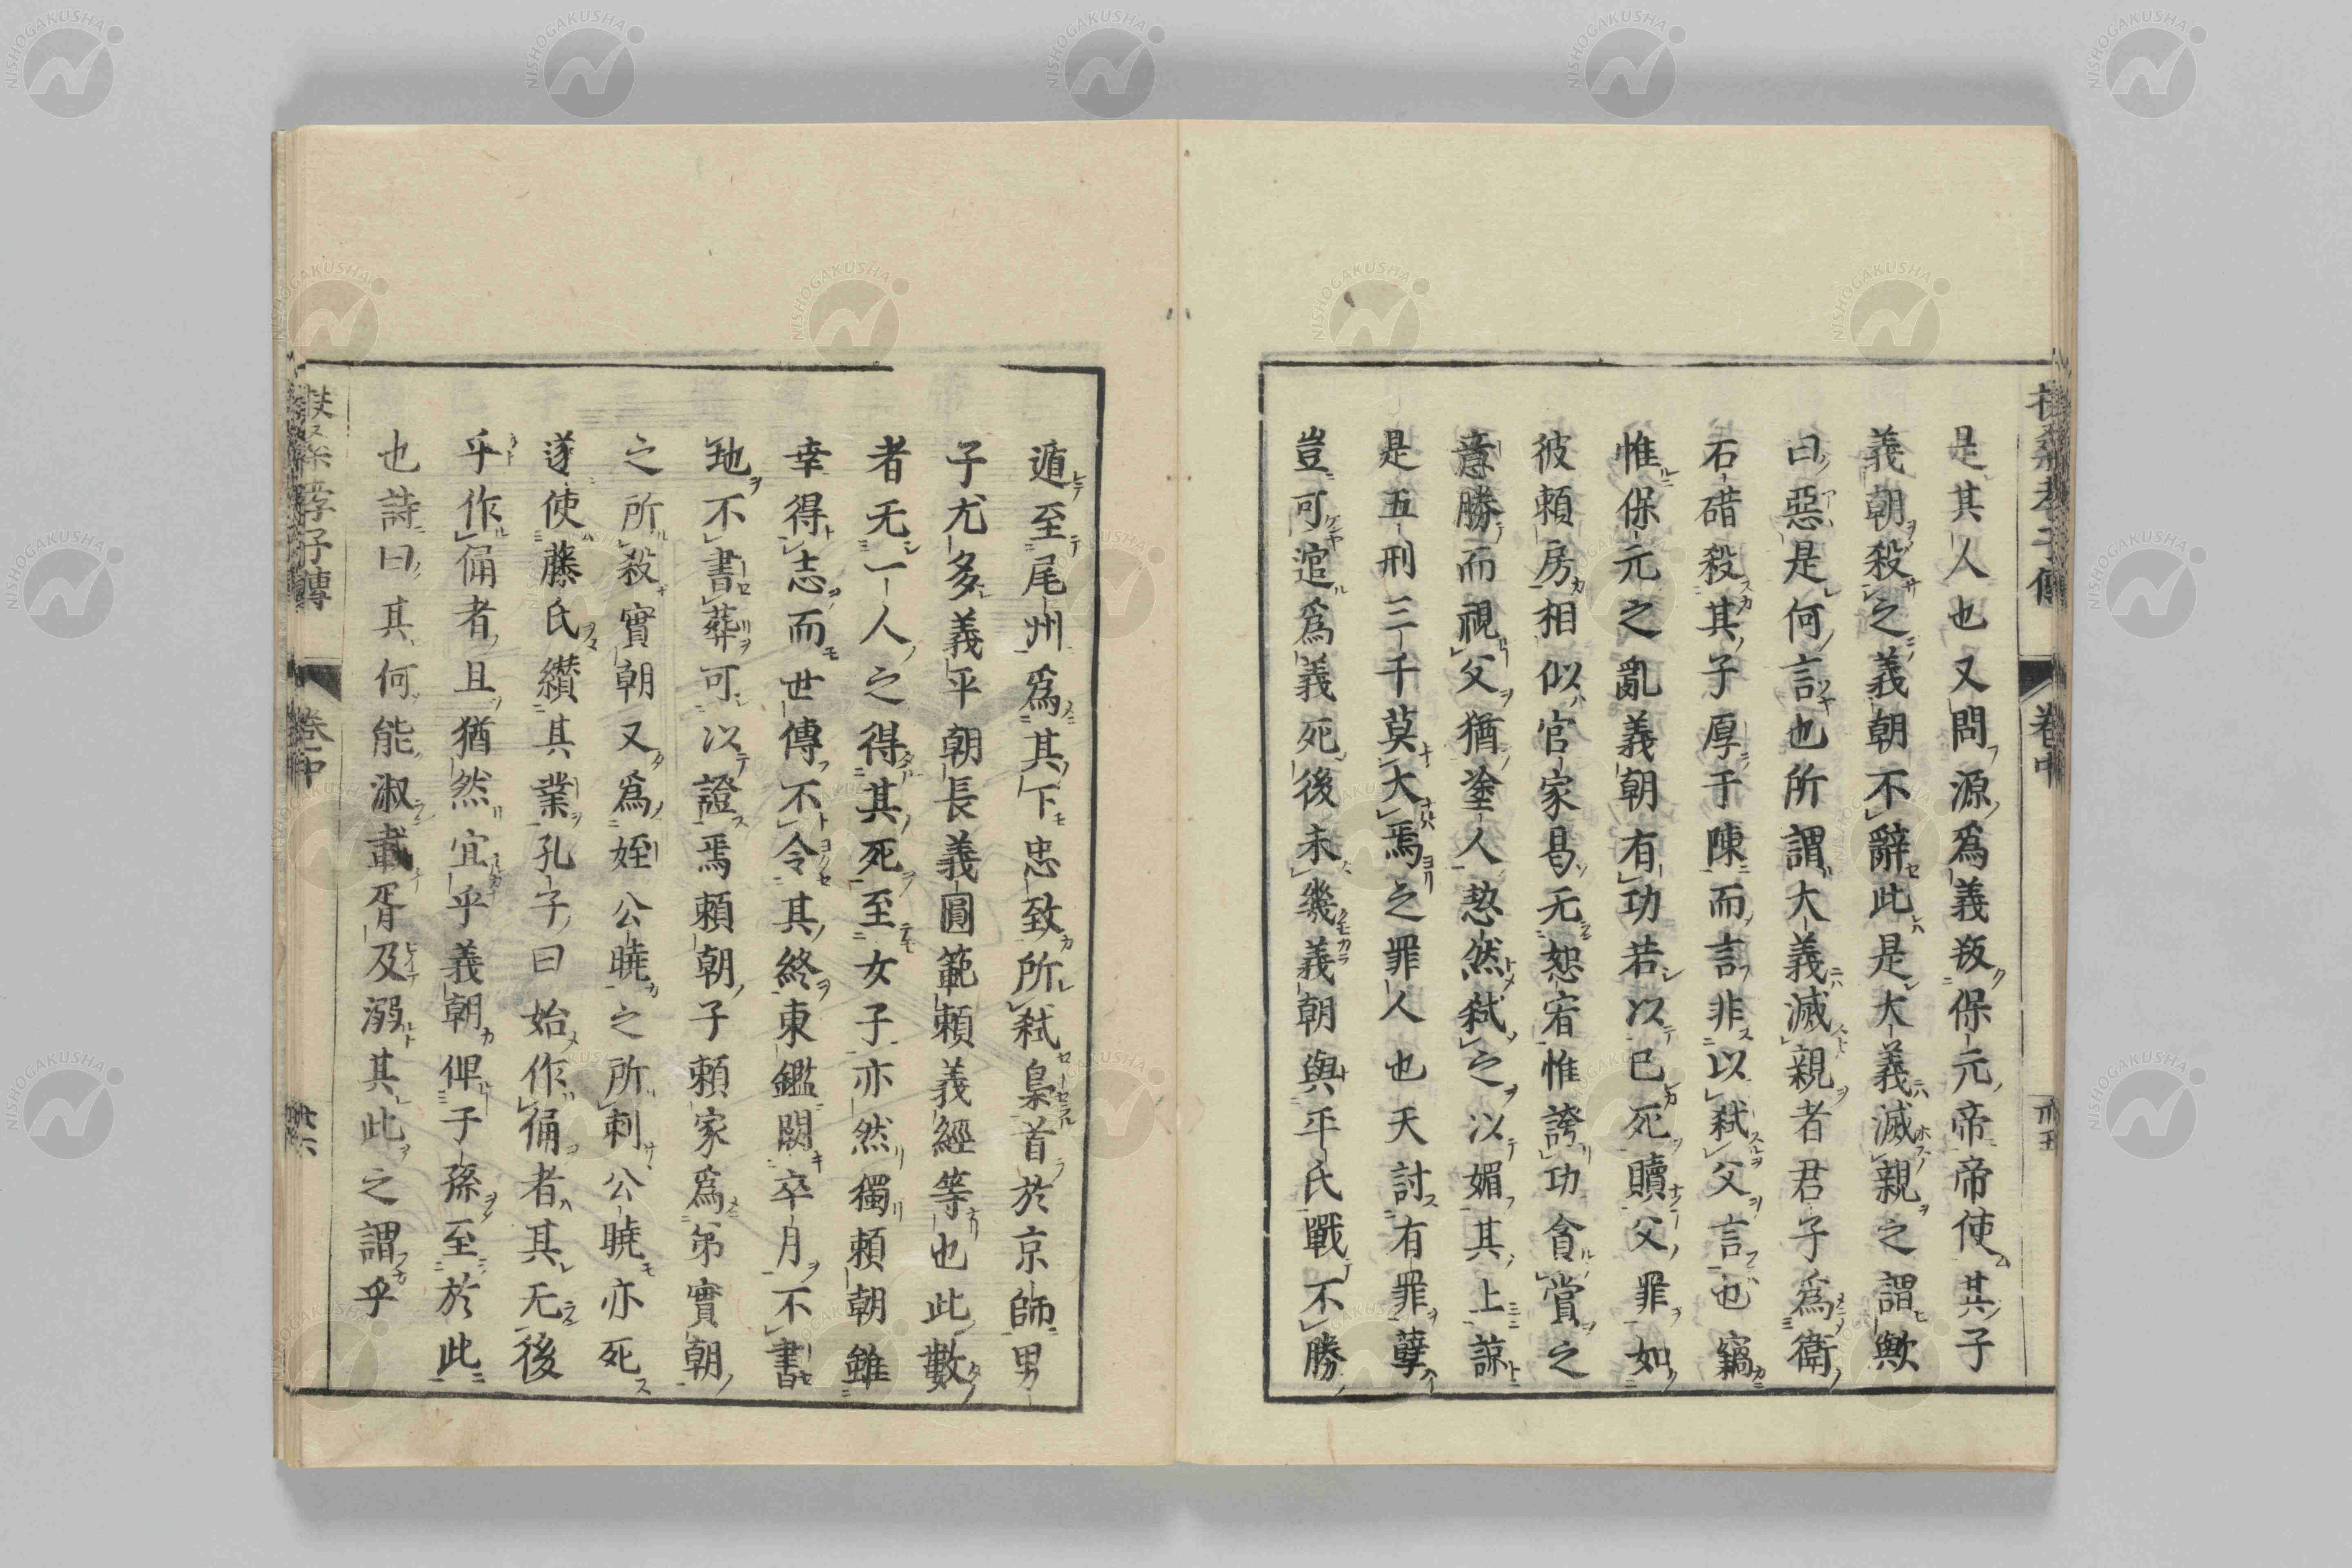 是其人也又問源爲義叛保元帝帝使其子
義朝殺之義朝不辭此是大義滅親之謂歟
曰惡是何言也所謂大義滅親者君子爲衛
石碏殺其子厚于陳而言非以弒父言也竊
惟保元之亂義朝有功若以己死贖父罪如
彼頼房相似官家曷无恕宥惟誇功貪賞之
意勝而視父猶塗人恝然弒之以媚其上諒
是五刑三千莫大焉之罪人也天討有罪孽
豈可逭爲義死後未幾義朝與平氏戰不勝
扶桑孝子傳 卷中
遁至尾州爲其下忠致所弒梟首於京師男
子尤多義平朝長義圓範頼義經等也此數
者无一人之得其死至女子亦然獨頼朝雖
幸得志而世傳不令其終東鑑闕卒月不書
地不書葬可以證焉頼朝子頼家爲弟實朝
之所殺實朝又爲姪公曉之所刺公曉亦死
遂使藤氏纉其業孔子曰始作俑者其无後
乎作俑者且猶然宜乎義朝俾子孫至於此
也詩曰其何能淑載胥及溺其此之謂乎
扶桑孝子傳 卷中 廿六
NISHOGAKUSHA